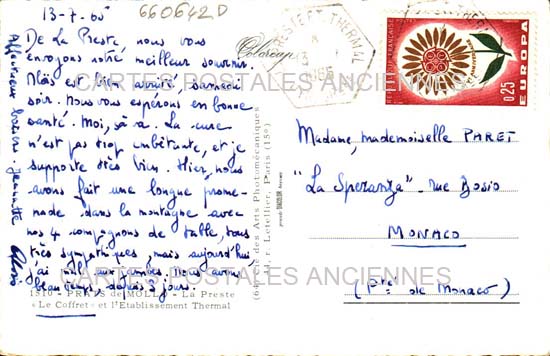 13-7-65
660642D
De La Preste, nous vous
envoyons notre meilleur souvenir.
Aloïs est bien arrivé, samedi
soir. Nous vous espérons en bonne
santé. Moi, ça va. La cure
n'est pas trop embêtante, et je
supporte très bien. Hier, nous
avons fait une longue prome-
nade dans la montagne avec
nos 4 compagnons de table, tous
très sympathiques, mais aujourd'hui
j'ai mal aux jambes. Nous avons
beau temps, depuis 2 jours.
Affectueux baisers. Jeannette
Aloïs
1510 - PRATS de MOLLO - La Preste
"Le Coffret" et l'Etablissement Thermal
des Arts Photomécaniques
r. Letellier, Paris (15e)
THERMAL
1965
POSTES
EUROPA
0,25
Madame, mademoiselle PARET
"La Speranza" - rue Bosio
MONACO
(Pté de Monaco)
CARTES POSTALES ANCIENNES
CARTES POSTALES ANCIENNES